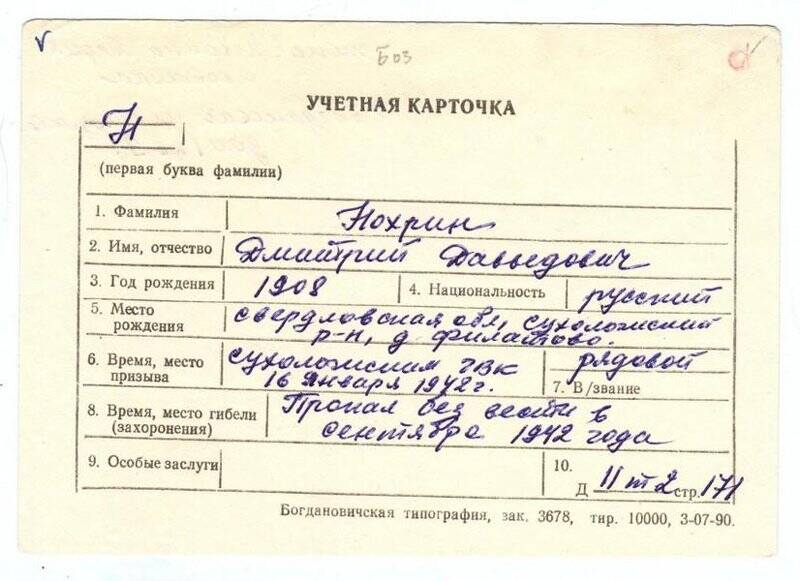 Боз
УЧЕТНАЯ КАРТОЧКА
Н
(первая буква фамилии)
1. Фамилия
Нохрин
2. Имя, отчество
Дмитрий Давыдович
3. Год рождения
1908
4. Национальность
русский
5. Место рождения
свердловская обл, сухоложский
р-н, д филатово.
6. Время, место призыва
сухоложским РВК
16 января 1942г.
рядовой
7. В/звание
8. Время, место гибели (захоронения)
Пропал без вести в
сентябре 1942 года
9. Особые заслуги
10.
Д 11 т 2 стр. 171
Богдановичская типография, зак. 3678, тир. 10000, 3-07-90.